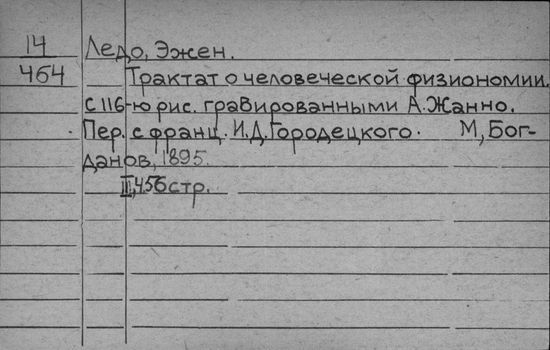 14 Ледо, Эжен.
464 Трактат о человеческой физиономии.
с 116-ю рис. гравированными А. Жанно.
Пер. с франц. И.Д. Городецкого. М, Бог-
данов, 1895.
II, 456 стр.